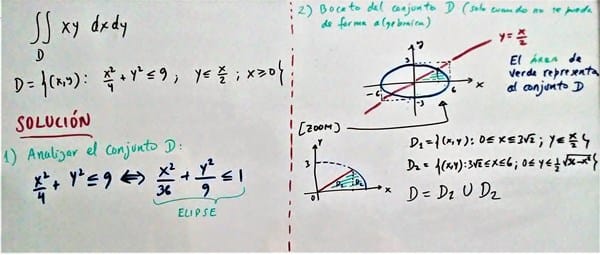 ∬ xy dxdy
D
D = {(x,y): x²/4 + y² ≤ 9 ; y ≤ x/2 ; x ≥ 0}
SOLUCIÓN
1) Analizar el conjunto D:
x²/4 + y² ≤ 9 ⟺ x²/36 + y²/9 ≤ 1
ELIPSE
2) Boceto del conjunto D (solo cuando no se puede
de forma algebraica)
y
y = x/2
3
-6
6
x
-3
El área de
verde representa
al conjunto D
[ZOOM]
y
3
D₁
D₂
0
x
D₁ = {(x,y): 0 ≤ x ≤ 3√2 ; y ≤ x/2}
D₂ = {(x,y): 3√2 ≤ x ≤ 6 ; 0 ≤ y ≤ ½√36-x²}
D = D₁ ∪ D₂